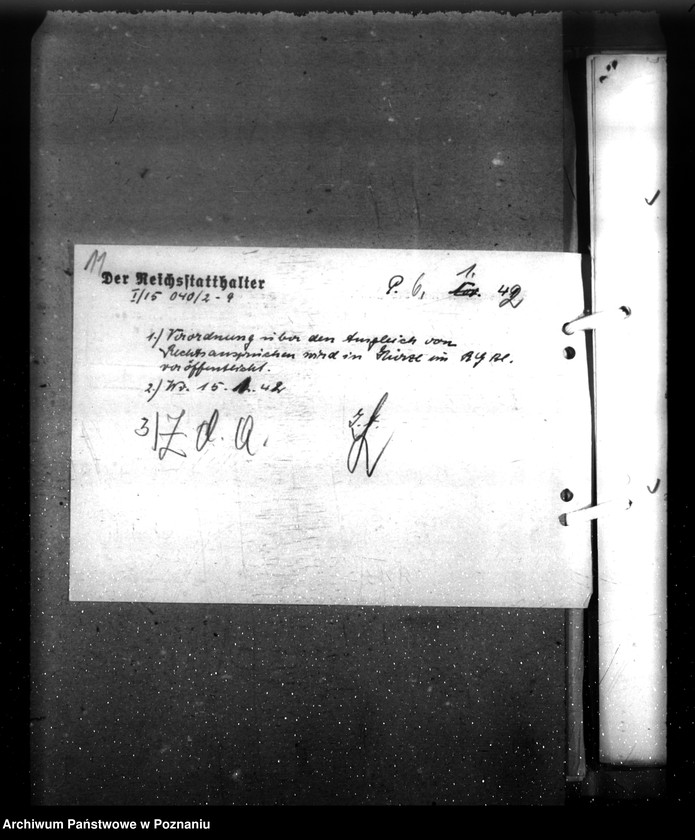 11
Der Reichsstatthalter
I/15 040/2-9
P. 6. 1. 42
1.) Verordnung über den Ausgleich von
Rechtsansprüchen wird in Kürze im RGBl.
veröffentlicht.
2.) Wv. 15. 42
3) Z. d. A.
Archiwum Państwowe w Poznaniu